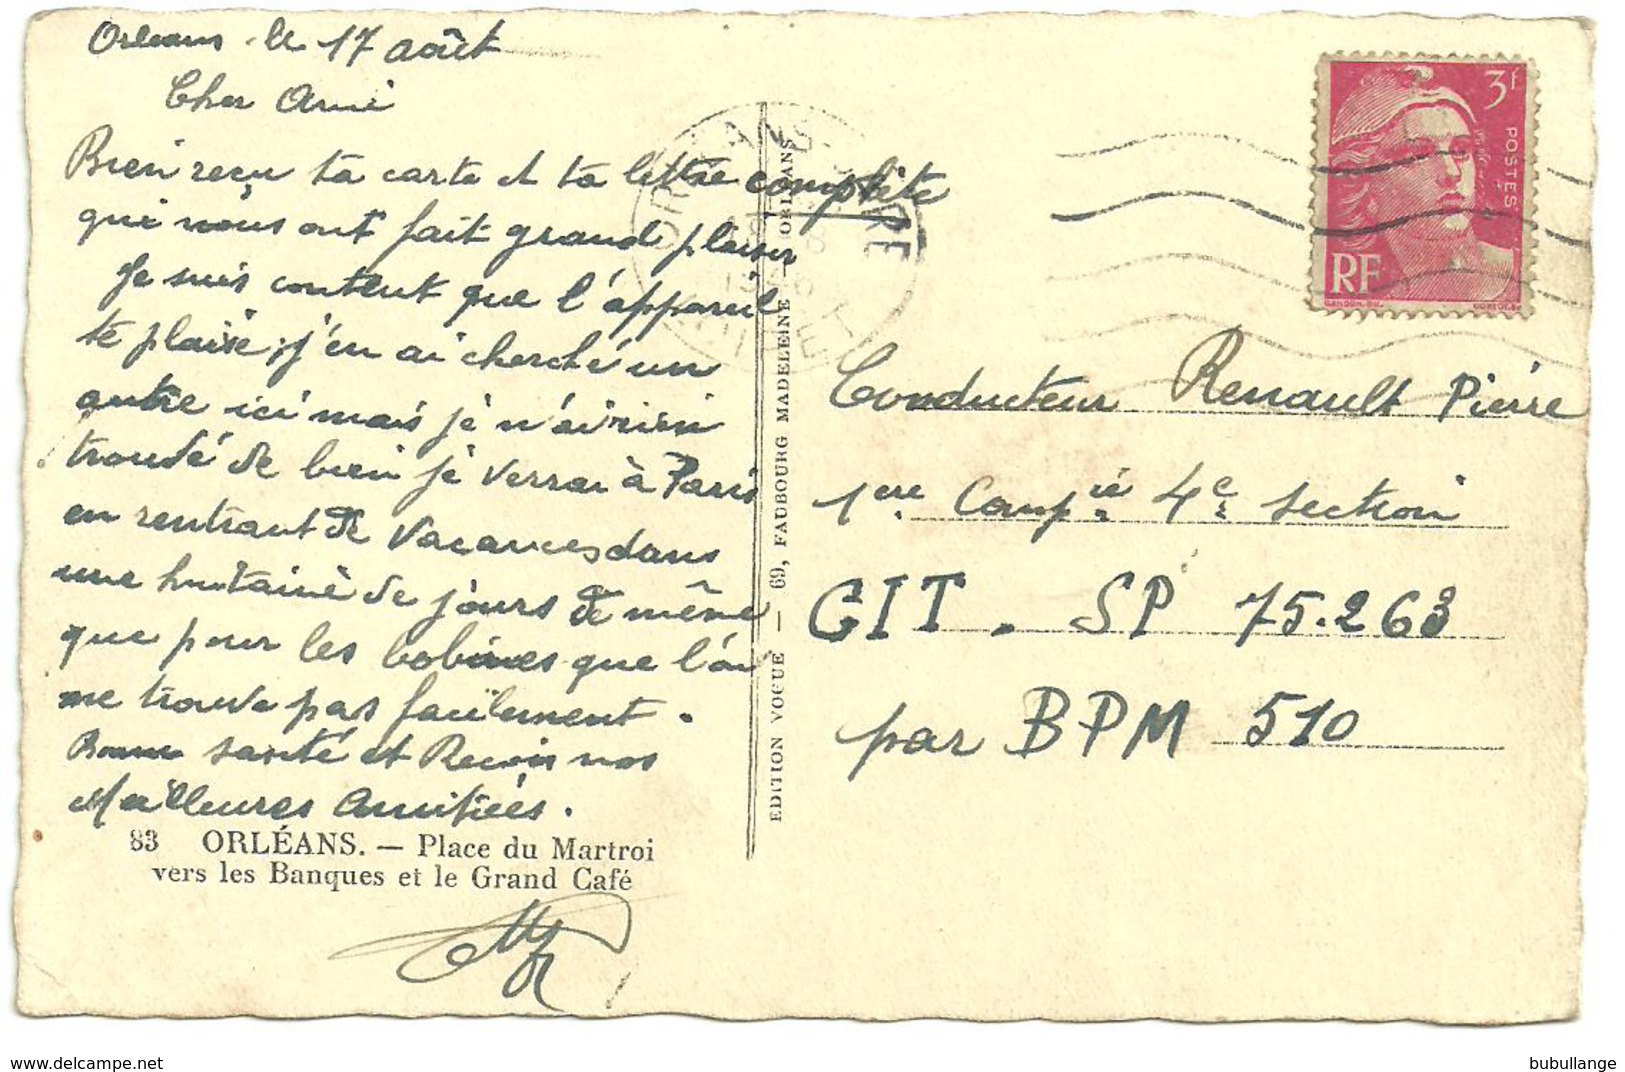 Orléans le 17 août
Cher Ami
Bien reçu ta carte et ta lettre complète
qui nous ont fait grand plaisir
Je suis content que l'appareil
te plaise, j'en ai cherché un
autre ici mais je n'ai rien
trouvé de bien je verrai à Paris
en rentrant de vacances dans
une huitaine de jours de même
que pour les bobines que l'on
ne trouve pas facilement.
Bonne santé et Recois nos
Meilleures amitiés.
83 ORLÉANS. — Place du Martroi
vers les Banques et le Grand Café
EDITION VOGUE — 69, FAUBOURG MADELEINE - ORLÉANS
3f
POSTES
RF
GANDON
Conducteur Renault Pierre
1ere Compie 4e section
GIT. SP 75.263
par BPM 510
delcampe.net
bubullange